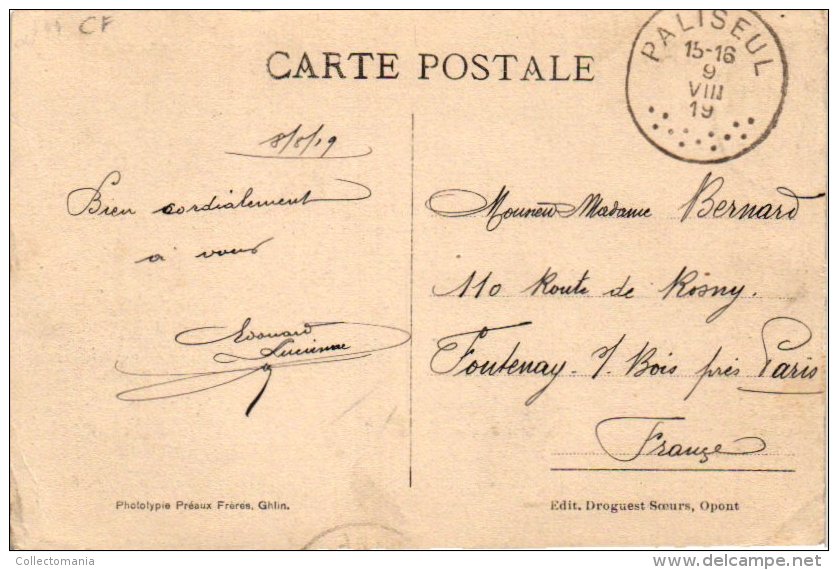 CF
CARTE POSTALE
PALISEUL
15-16
9
VIII
19
8/8/19
Bien cordialement
à vous
Edouard
Monsieur Madame Bernard
110 Route de Rosny.
Fontenay s/ Bois près Paris
France
Phototypie Préaux Frères, Ghlin.
Edit. Droguest Sœurs, Opont
Collectomania
www.delcampe.net